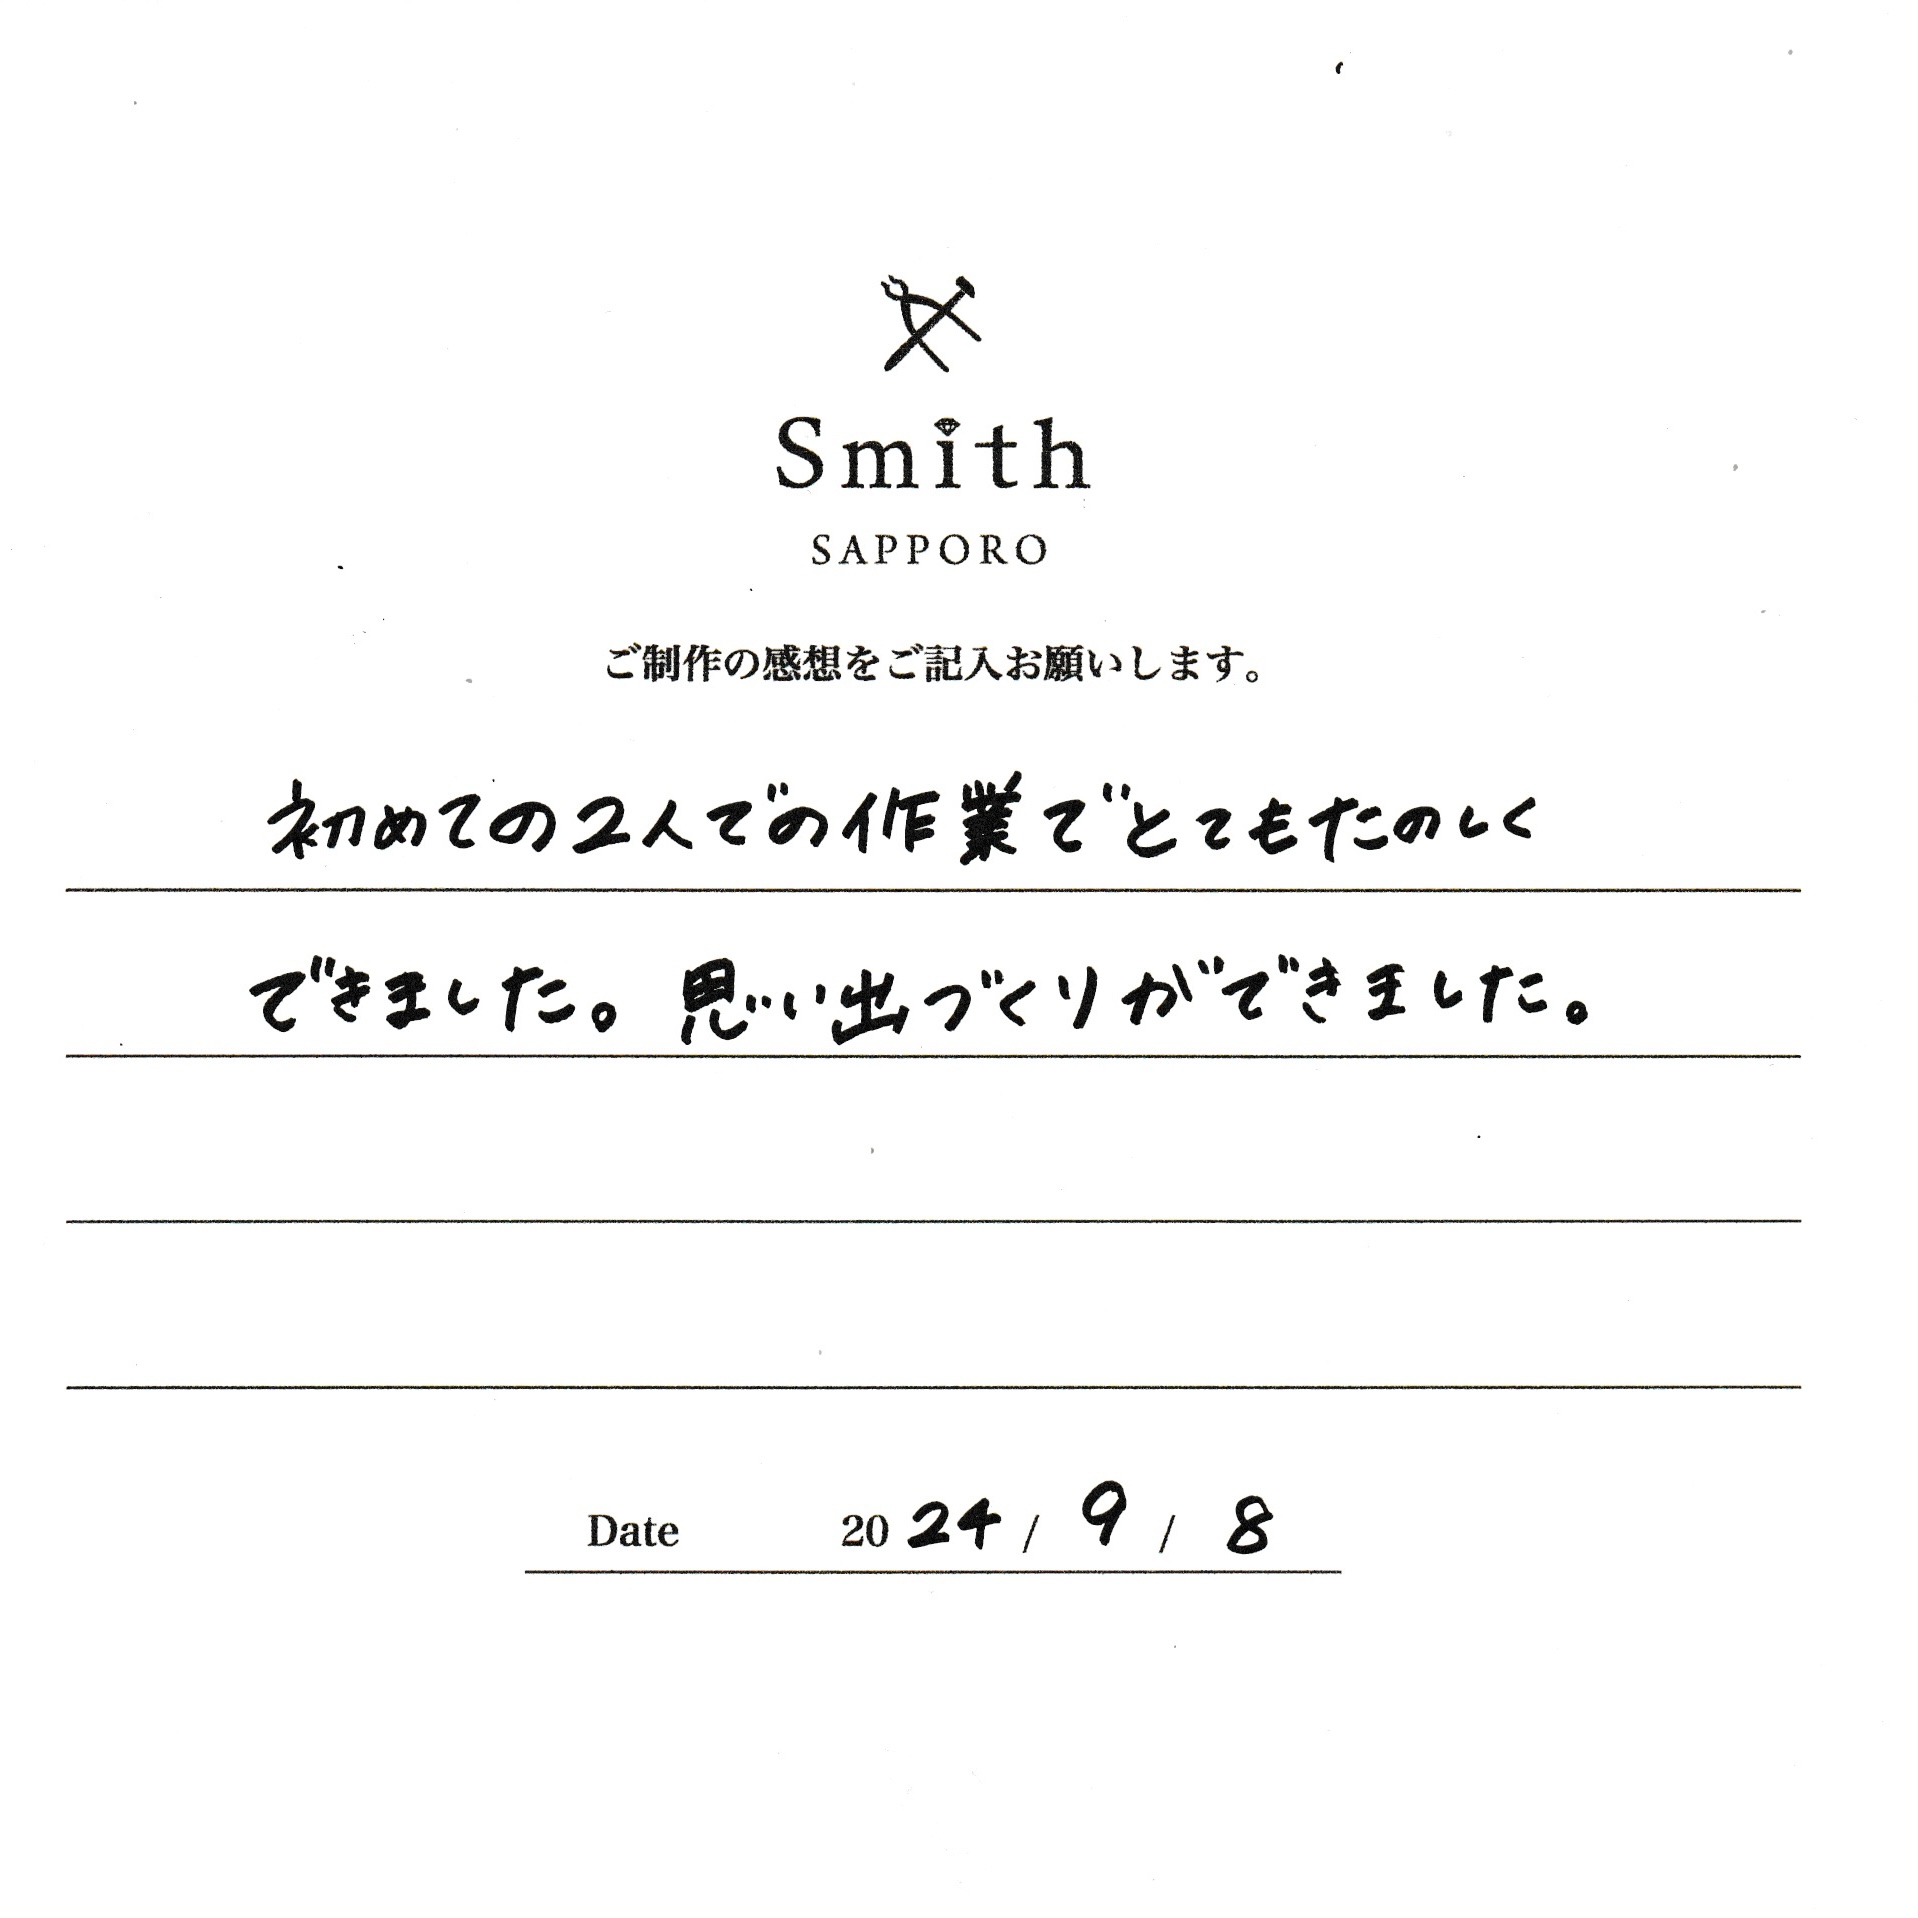 Smith
SAPPORO
ご制作の感想をご記入お願いします。
初めての2人での作業でとてもたのしく
できました。思い出づくりができました。
Date 2024 / 9 / 8